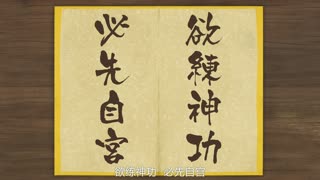 欲練神功
必先自宮
欲练神功 必先自宫